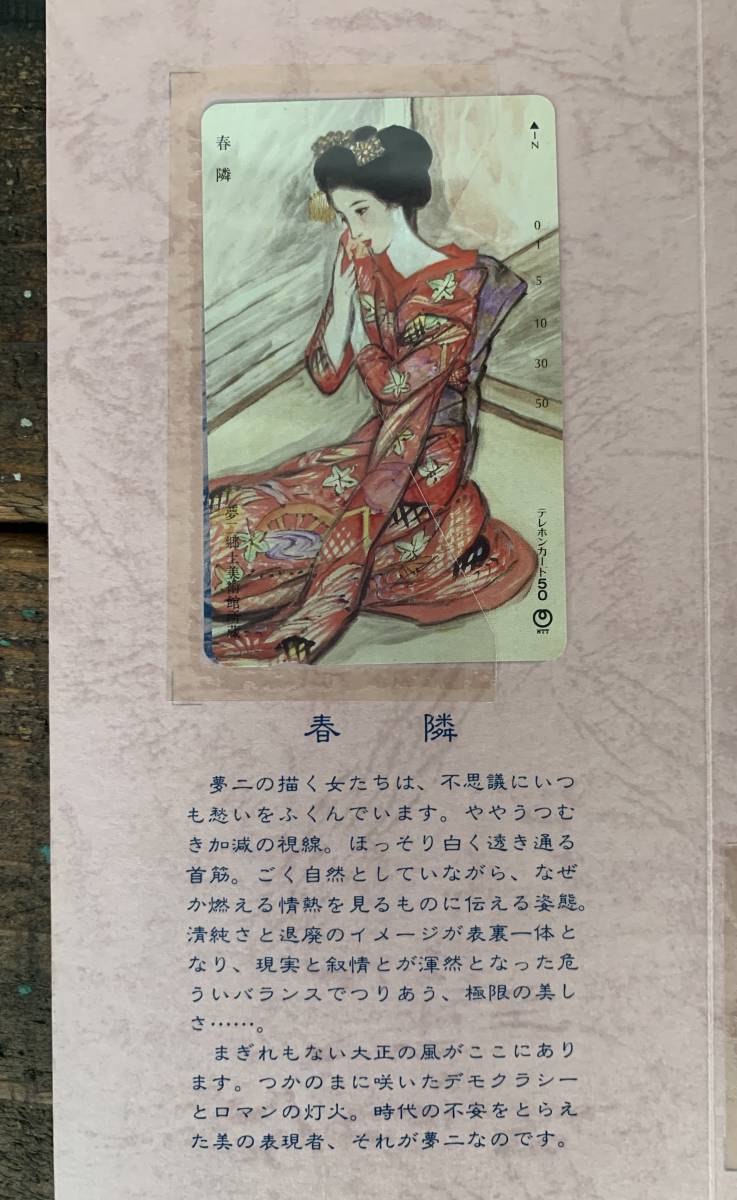 春隣
▲IN
0
1
5
10
30
50
テレホンカード50
NTT
夢二郷土美術館所蔵
春 隣
夢二の描く女たちは、不思議にいつ
も愁いをふくんでいます。ややうつむ
き加減の視線。ほっそり白く透き通る
首筋。ごく自然としていながら、なぜ
か燃える情熱を見るものに伝える姿態。
清純さと退廃のイメージが表裏一体と
なり、現実と叙情とが渾然となった危
ういバランスでつりあう、極限の美し
さ……。
まぎれもない大正の風がここにあり
ます。つかのまに咲いたデモクラシー
とロマンの灯火。時代の不安をとらえ
た美の表現者、それが夢二なのです。